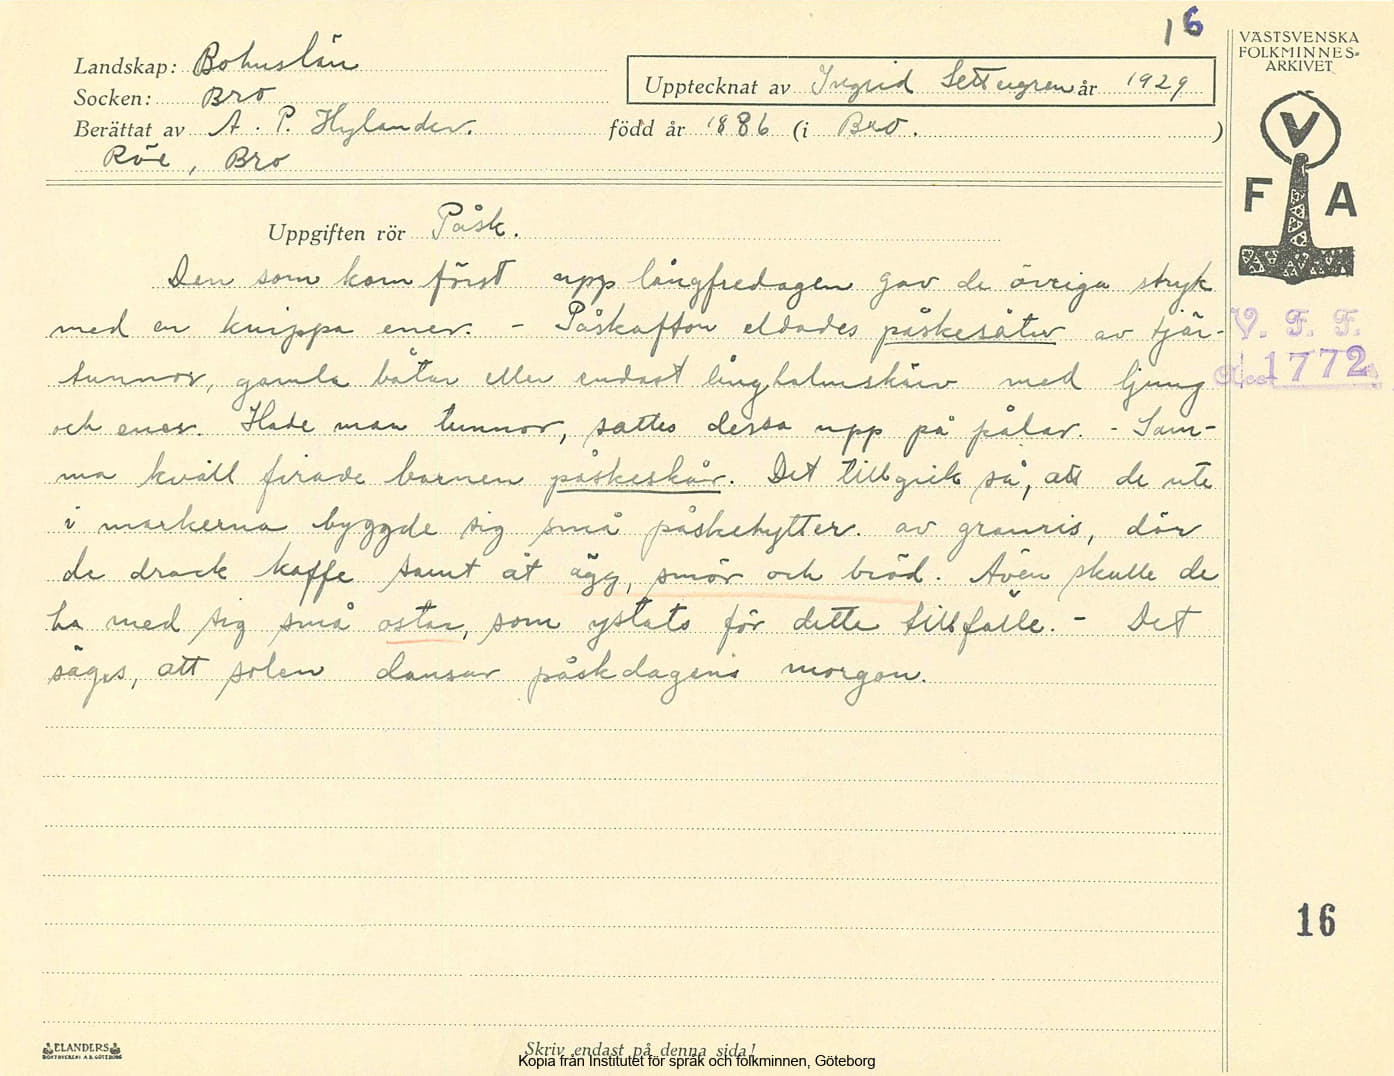 16
VÄSTSVENSKA
FOLKMINNES-
ARKIVET
Landskap: Bohuslän
Upptecknat av Ingrid Settergren år 1929
Socken: Bro
Berättat av A. P. Hylander. född år 1886 (i Bro. )
Röe, Bro
V
F A
Uppgiften rör Påsk.
Den som kom först upp långfredagen gav de övriga stryk
med en knippa ener. - Påskafton eldades påskesåtur av tjär-
tunnor, gamla båtar eller endast långhalmskärv med ljung
och ener. Hade man tunnor, sattes dessa upp på pålar. - Sam-
ma kväll firade barnen påskeskår. Det tillgick så, att de ute
i markerna byggde sig små påskehytter. av granris, där
de drack kaffe samt åt ägg, smör och bröd. Även skulle de
ha med sig små ostar, som ystats för detta tillfälle. - Det
säges, att solen dansar påskdagens morgon.
V. F. F.
Acc 1772
16
ELANDERS
BOKTRYCKERI A.B. GÖTEBORG
Skriv endast på denna sida!
Kopia från Institutet för språk och folkminnen, Göteborg